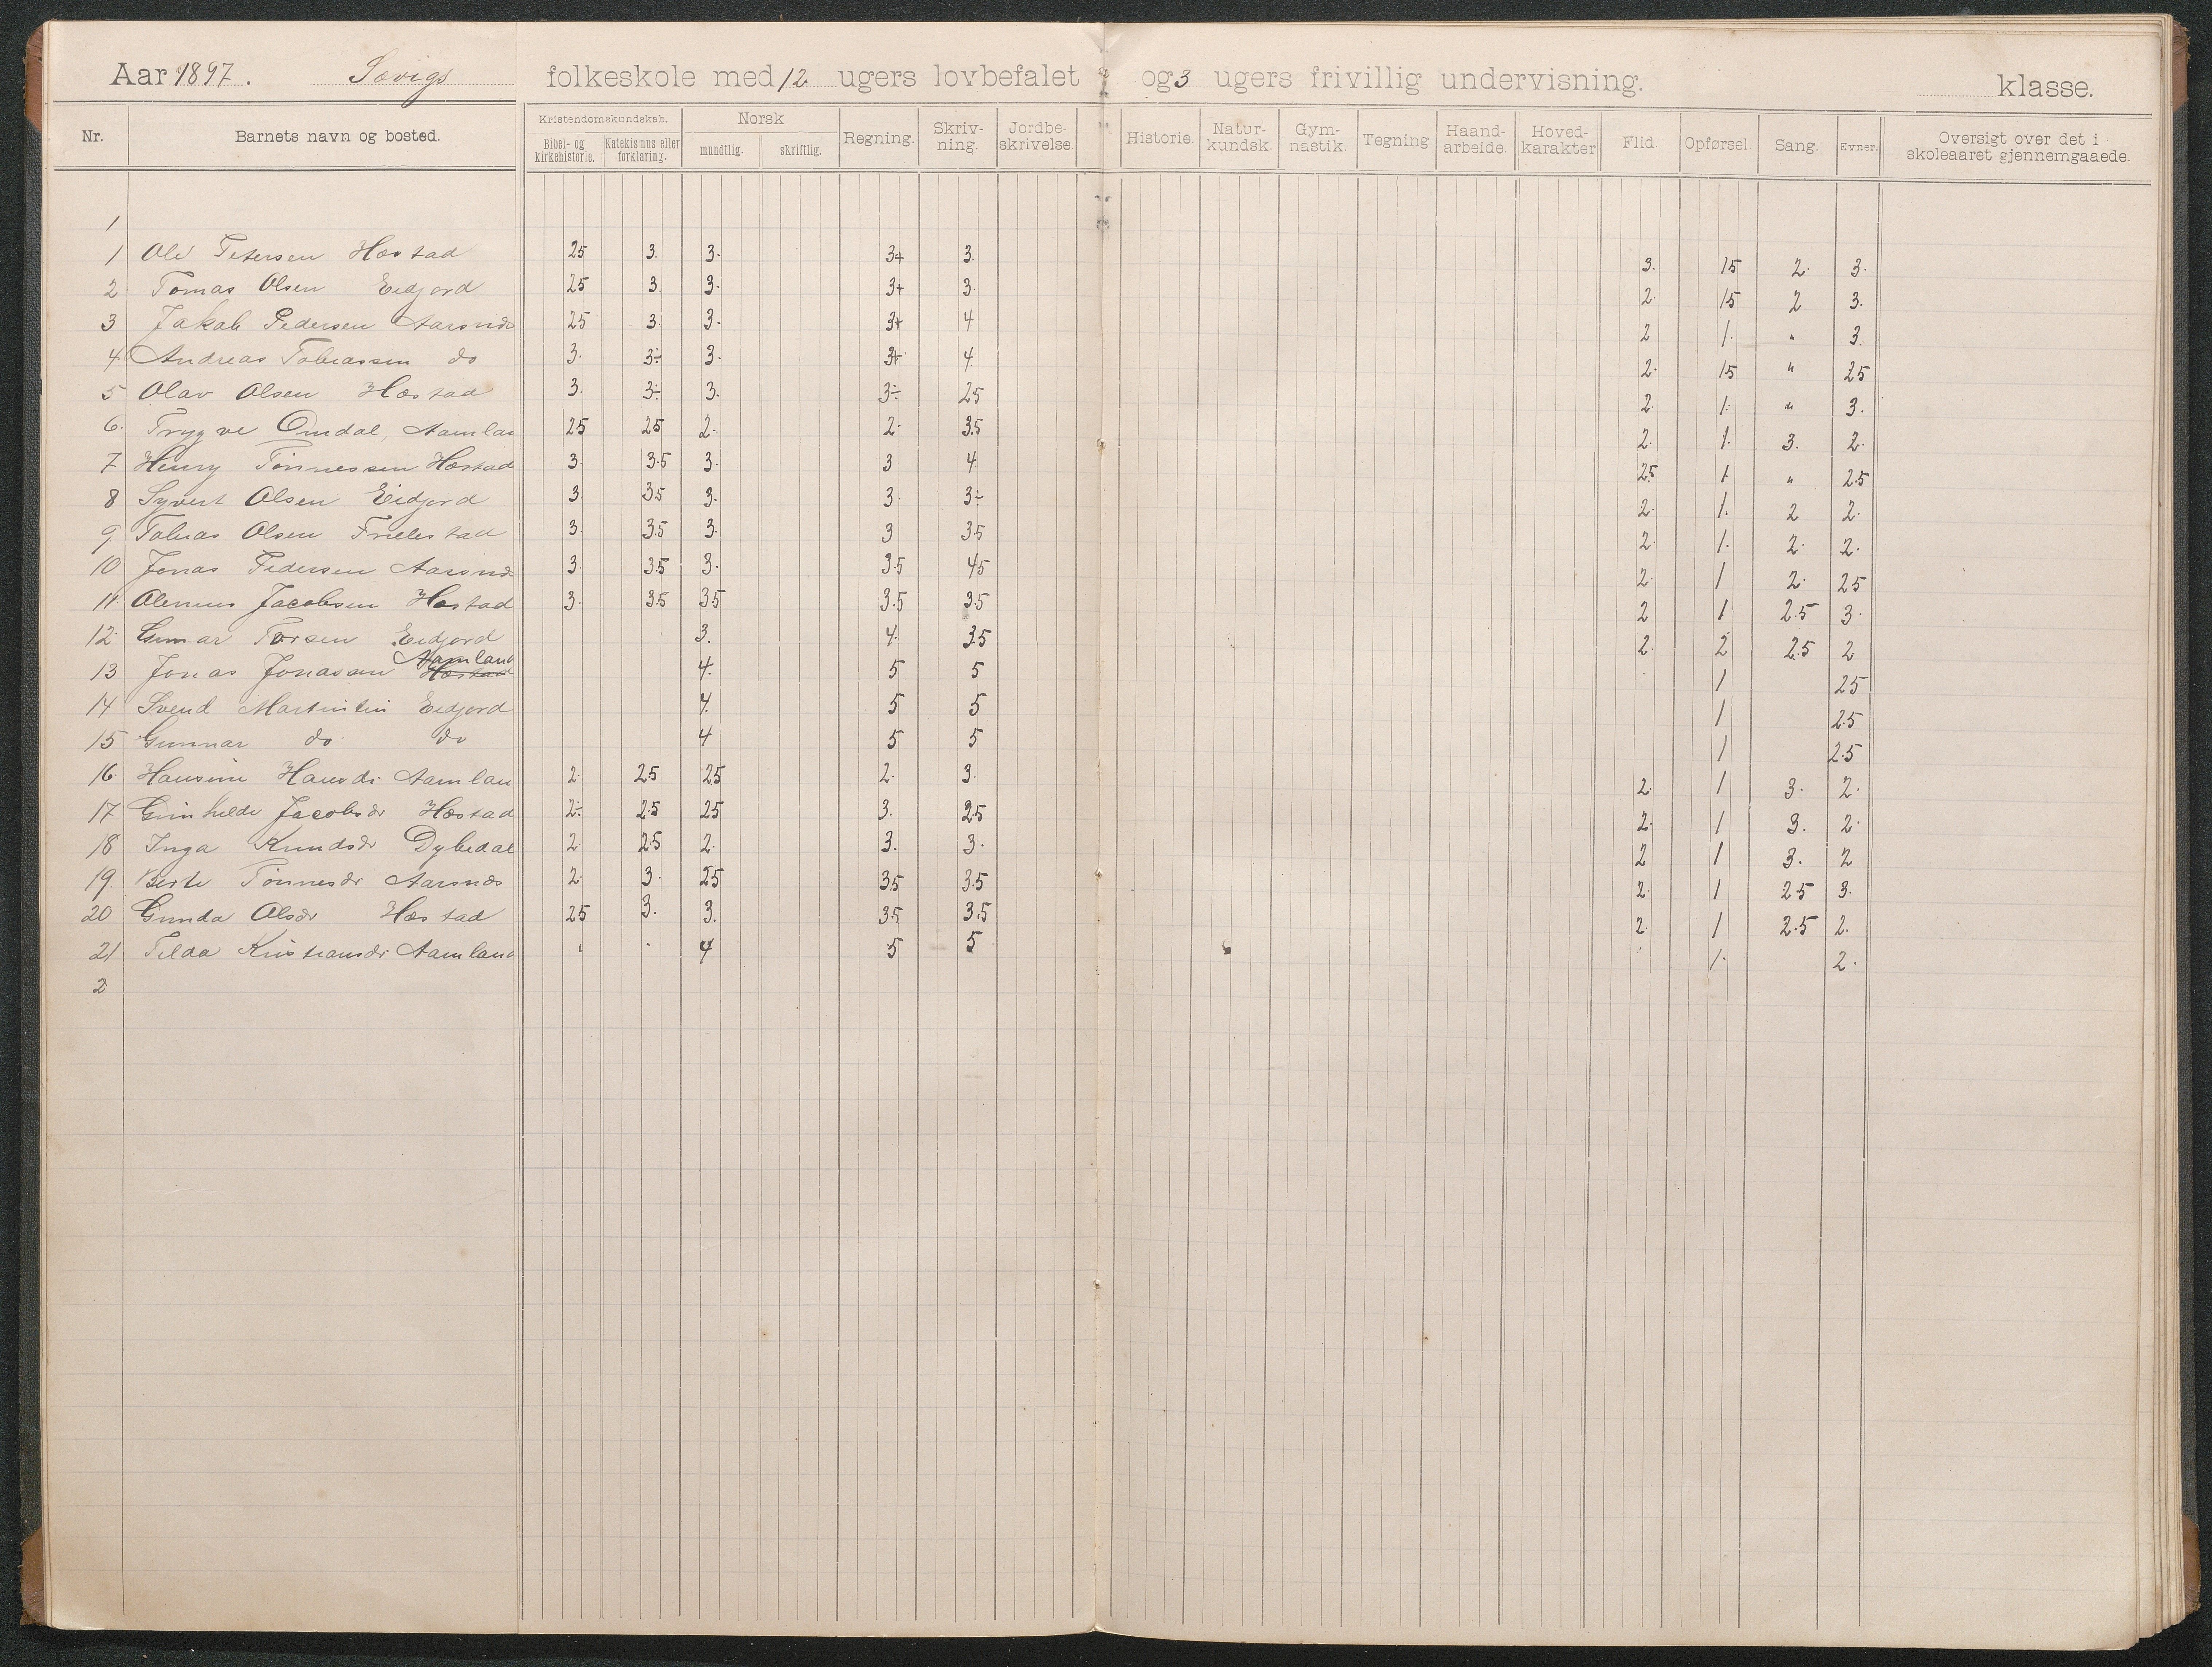 Aar 1897. Sævigs folkeskole med 12 ugers lovbefalet og 3 ugers frivillig undervisning. klasse.
Nr. Barnets navn og bosted. Kristendomskundskab. Bibel- og kirkehistorie. Katekismus eller forklaring. Norsk mundtlig. skriftlig. Regning. Skriv-ning. Jordbe-skrivelse. Historie. Natur-kundsk. Gym-nastik. Tegning Haand-arbeide. Hoved-karakter Flid. Opførsel. Sang. Evner. Oversigt over det i skoleaaret gjennemgaaede.
1
1 Ole Petersen Hæstad 25 3. 3. 3+ 3. 3. 15 2. 3.
2 Tomas Olsen Eidjord 25 3 3. 3+ 3. 2. 15 2 3.
3 Jakob Pedersen Aarsnes 25 3. 3. 3+ 4 2 1. " 3.
4 Andreas Tobiassen do 3. 3÷ 3. 3+ 4. 2. 15 " 25
5 Olav Olsen Hæstad 3. 3÷ 3. 3÷ 25 2. 1. " 3.
6. Trygve Omdal, Aamlan 25 25 2. 2. 35 2. 1. 3. 2.
7 Henry Tönnessen Hæstad 3. 3.5 3. 3 4 25 1 " 2.5
8 Syvert Olsen Eidjord 3. 35 3. 3. 3÷ 2. 1. 2 2.
9 Tobias Olsen Frielestad 3. 3.5 3. 3 35 2. 1. 2. 2.
10 Jonas Pedersen Aarsnes 3 35 3. 3.5 45 2. 1 2. 25
11 Olenius Jacobsen Hæstad 3. 35 35 3.5 3.5 2 1 2.5 3.
12. Gunnar Torsen Eidjord 3. 4. 35 2. 2 25 2
13 Jonas Jonassen Hæstad Aamland 4. 5 5 1 25
14 Svend Martintin Eidjord 4. 5 5 1 2.5
15 Gunnar do do 4 5 5 1 2.5
16. Hansine Hansdr Aamlan 2. 25 25 2. 3. 2. 1 3. 2.
17 Gunhilde Jacobsdr Hæstad 2÷ 2.5 25 3. 25 2. 1 3. 2.
18 Inga Knudsdr Dybedal 2. 2.5 2. 3. 3. 2 1 3. 2
19. Berte Tönnesdr Aarsnes 2. 3. 25 35 3.5 2. 1 25 3.
20 Gunda Olsdr Hæstad 25 3. 3. 35 3.5 2. 1 2.5 2.
21 Tilda Kristiansdr Aamland 4 5 5 1. 2.
2